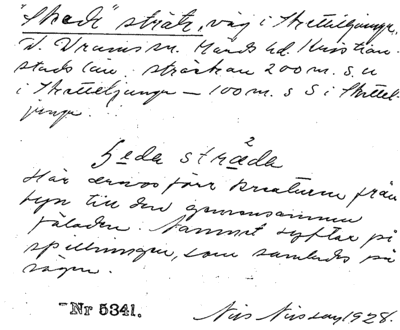 "Skede" sträte, väg i Skettiljunga,
V. Vrams sn. Gärds hd. Kristian-
stads län. sträckan 200 m. S. u
i Skettiljunga — 100 m. S S i Skettil-
junga.
2
Seda sträda
Här drevos förr kreaturen från
byn till den gemensamma
fäladen. Namnet syftar på
spillningen, som samlades på
vägen.
Nr 5341.
Nils Nilsson 1928.